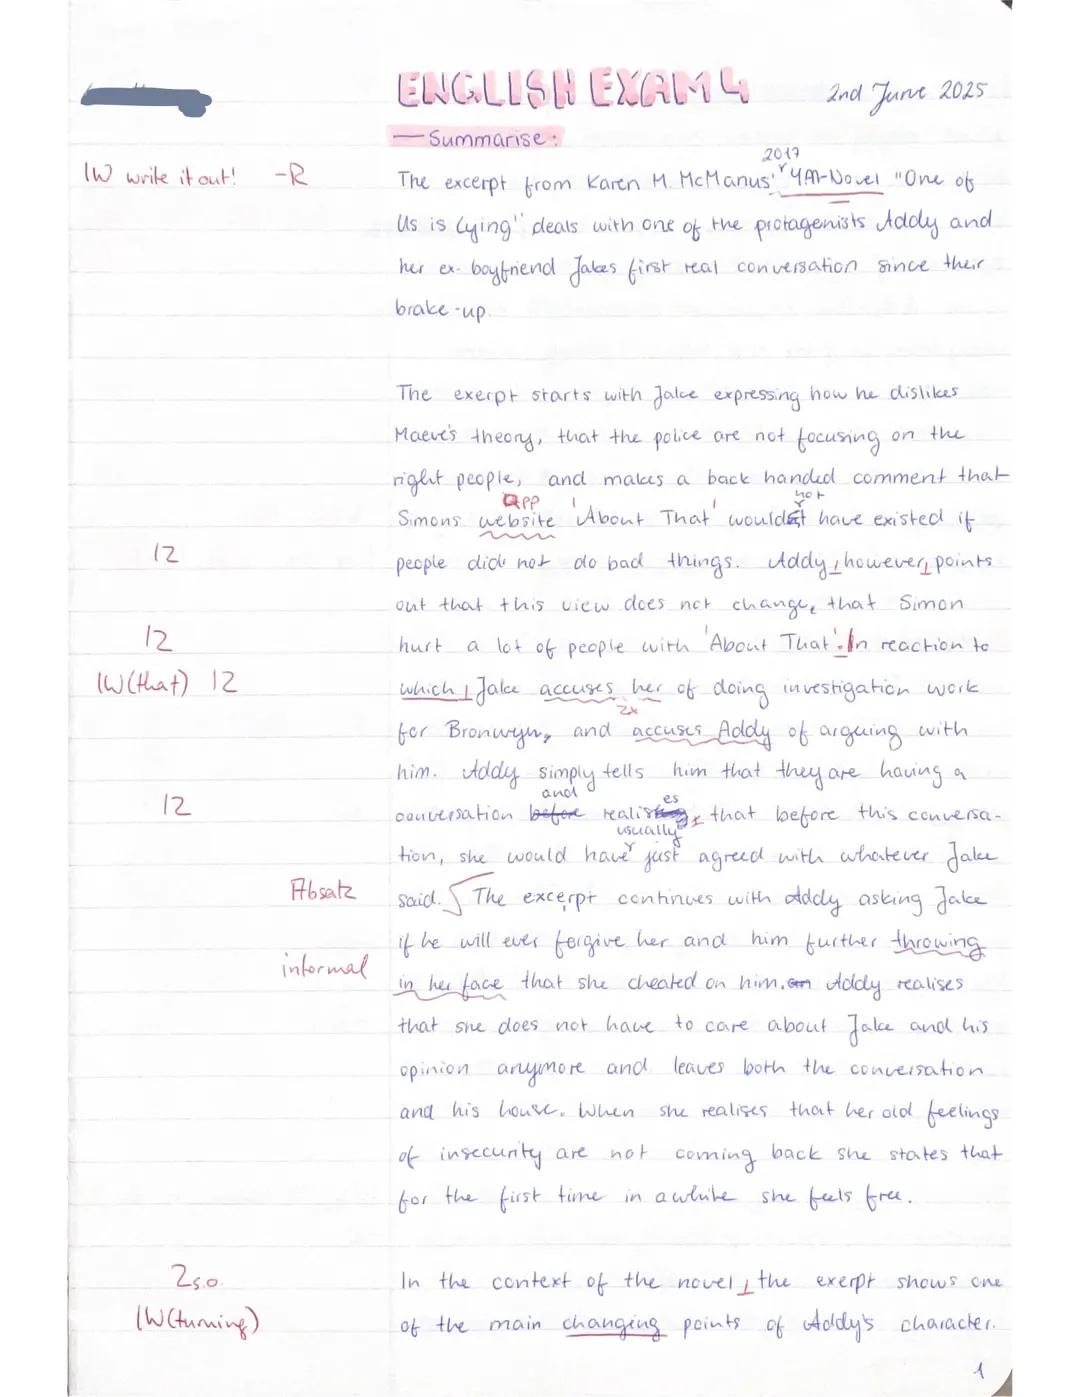 ENGLISH EXAM 4
2nd June 2025
— Summarise:
2017
1W write it out! -R
The excerpt from Karen M. McManus' YA-Novel "One of
Us is Lying" deals with one of the protagenists Addy and
her ex-boyfriend Jakes first real conversation since their
brake-up.
The exerpt starts with Jake expressing how he dislikes
Maeve's theory, that the police are not focusing on the
right people, and makes a back handed comment that
app
not
Simons website 'About That' would have existed if
1Z
people did not do bad things. Addy, however, points
out that this view does not change, that Simon
1Z
hurt a lot of people with 'About That'. In reaction to
1W (that) 1Z
which, Jake accuses her of doing investigation work
2x
for Bronwyn, and accuses Addy of arguing with
him. Addy simply tells him that they are having a
and
es
1Z
conversation before realis, that before this conversa-
usually
tion, she would have just agreed with whatever Jake
Absatz
said. The excerpt continues with Addy asking Jake
if he will ever forgive her and him further throwing
informal
in her face that she cheated on him. Addy realises
that she does not have to care about Jake and his
opinion anymore and leaves both the conversation
and his house. When she realises that her old feelings
of insecurity are not coming back she states that
for the first time in awhile she feels free.
Z s.o.
In the context of the novel, the exerpt shows one
1W (turning)
of the main changing points of Addy's character.
1